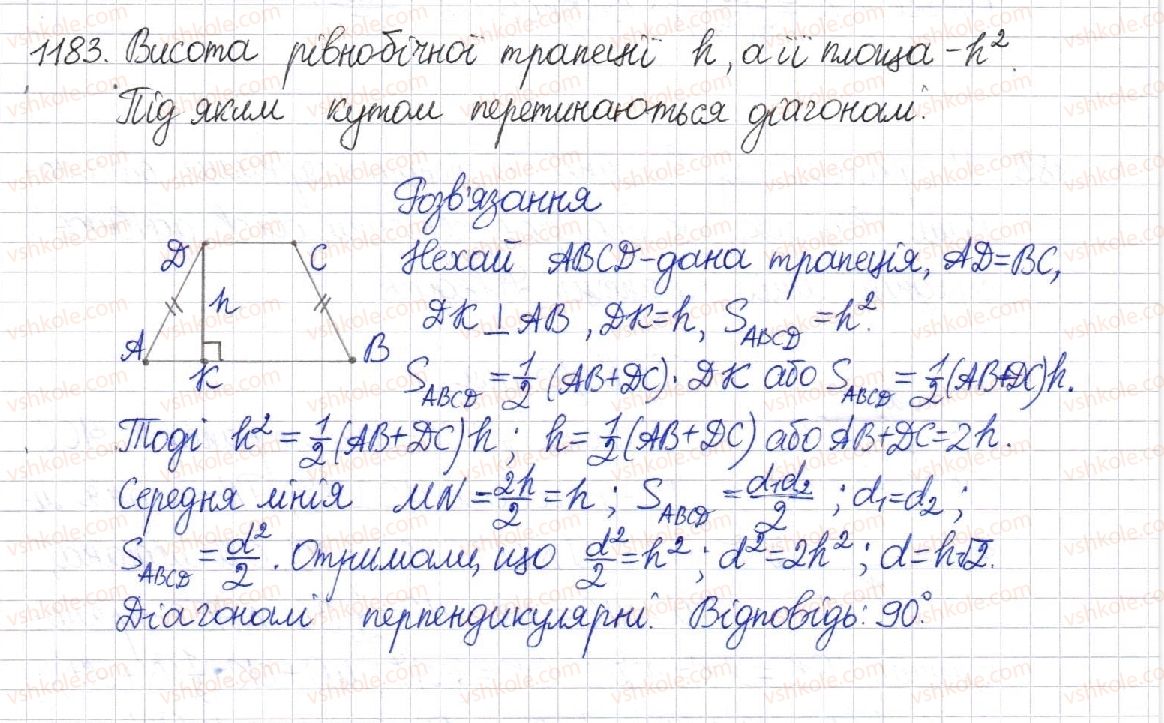 1183. Висота рівнобічної трапеції h, а її площа - h².
Під яким кутом перетинаються діагоналі.
Розв'язання
D C
h
A K B
Нехай ABCD - дана трапеція, AD=BC,
DK ⊥ AB, DK=h, S_ABCD = h².
S_ABCD = 1/2 (AB+DC) · DK або S_ABCD = 1/2 (AB+DC)h.
Тоді h² = 1/2 (AB+DC)h; h = 1/2 (AB+DC) або AB+DC=2h.
Середня лінія MN = 2h/2 = h; S_ABCD = d₁d₂/2; d₁=d₂;
S_ABCD = d²/2. Отримали, що d²/2 = h²; d² = 2h²; d = h√2.
Діагоналі перпендикулярні. Відповідь: 90°.
vshkole.com